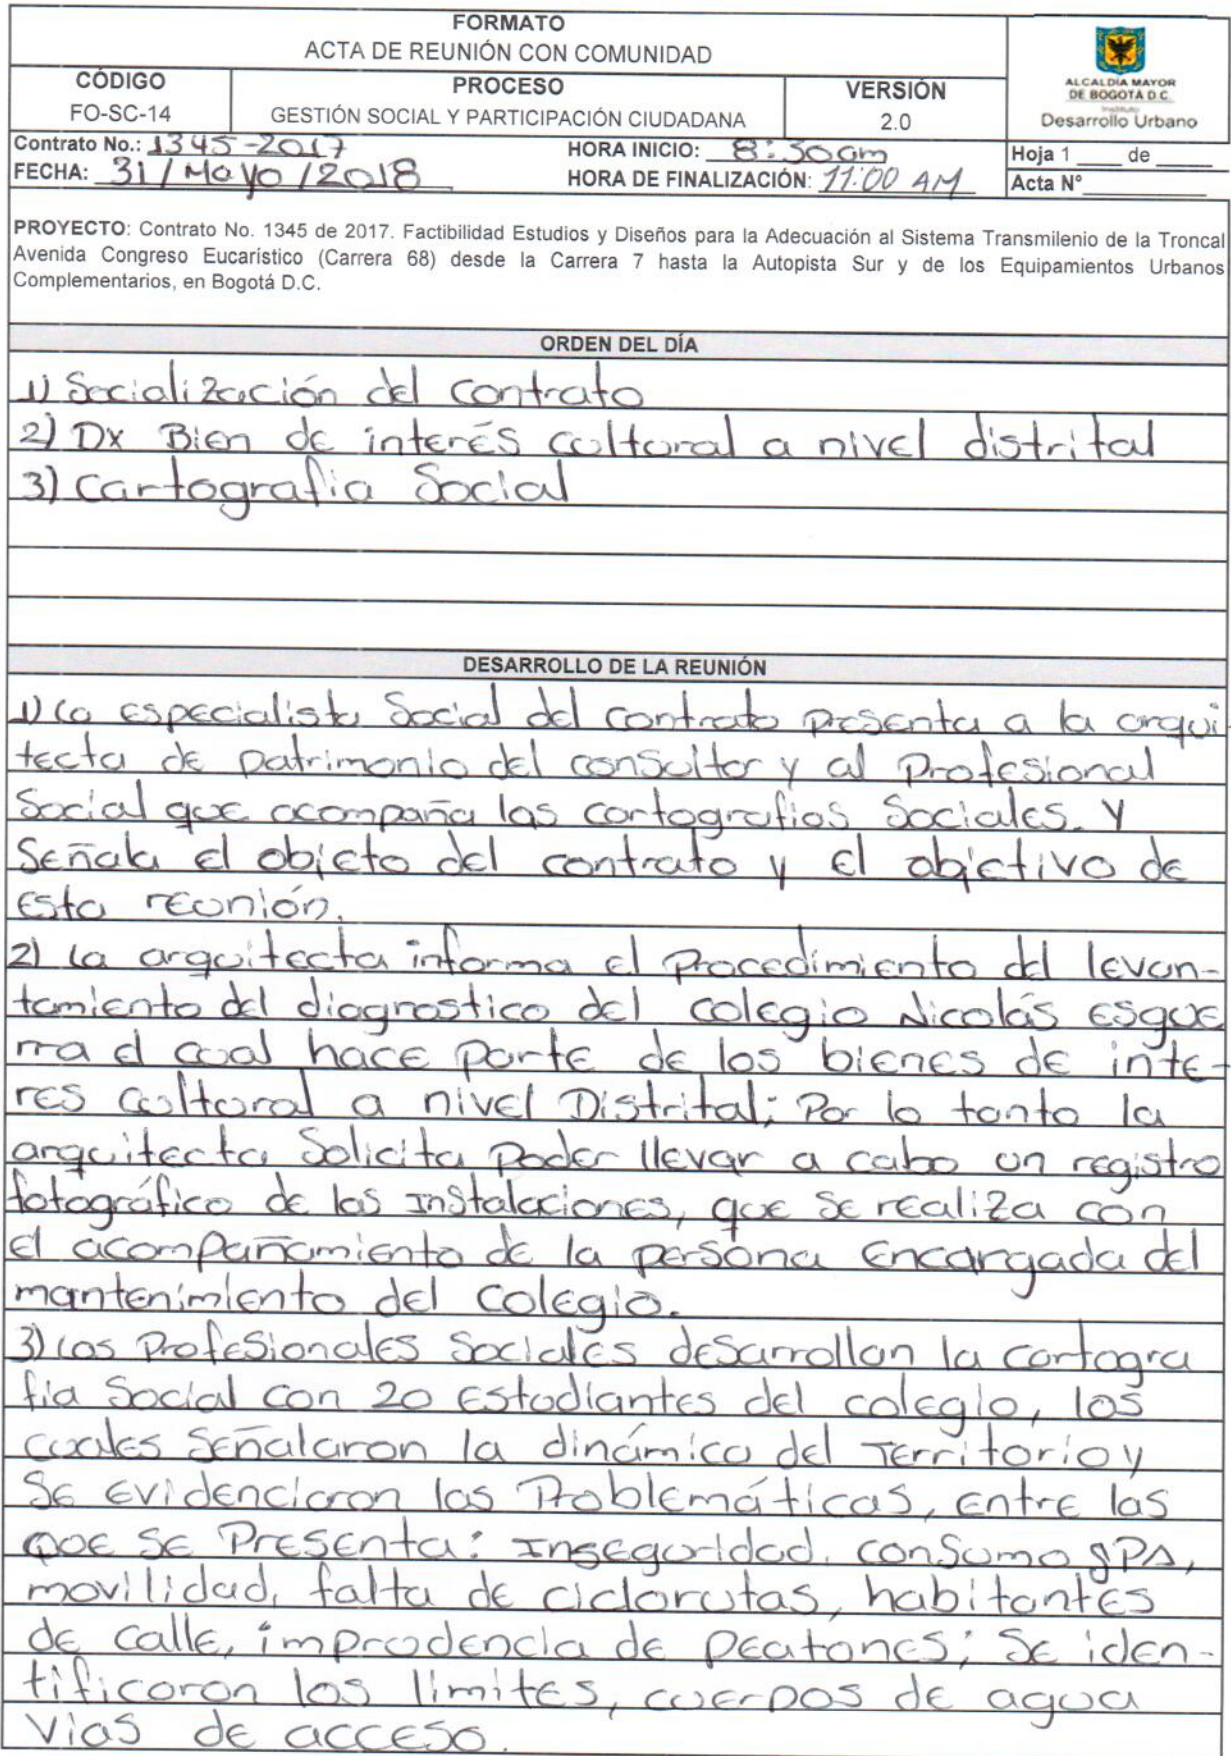 FORMATO
ACTA DE REUNIÓN CON COMUNIDAD
CÓDIGO
FO-SC-14
PROCESO
GESTIÓN SOCIAL Y PARTICIPACIÓN CIUDADANA
VERSIÓN
2.0
ALCALDÍA MAYOR
DE BOGOTÁ D.C.
Instituto
Desarrollo Urbano
Contrato No.: 1345-2017
HORA INICIO: 8:30am
Hoja 1 ____ de ____
FECHA: 31/Mayo/2018
HORA DE FINALIZACIÓN: 11:00 AM
Acta N° ____
PROYECTO: Contrato No. 1345 de 2017. Factibilidad Estudios y Diseños para la Adecuación al Sistema Transmilenio de la Troncal
Avenida Congreso Eucarístico (Carrera 68) desde la Carrera 7 hasta la Autopista Sur y de los Equipamientos Urbanos
Complementarios, en Bogotá D.C.
ORDEN DEL DÍA
1) Socialización del contrato
2) Dx Bien de interés cultural a nivel distrital
3) Cartografia Social
DESARROLLO DE LA REUNIÓN
1) La especialista Social del contrato presenta a la arqui-
tecta de patrimonio del consultor y al Profesional
Social que acompaña las cartografias Sociales. Y
Señala el objeto del contrato y el objetivo de
esta reunión.
2) La arquitecta informa el procedimiento del levan-
tamiento del diagnostico del colegio Nicolás esgue
rra el cual hace parte de los bienes de inte-
res cultural a nivel Distrital; Por lo tanto la
arquitecta Solicita poder llevar a cabo un registro
fotográfico de las Instalaciones, que se realiza con
el acompañamiento de la persona encargada del
mantenimiento del colegio.
3) Los Profesionales Sociales desarrollan la cartogra
fia Social con 20 estudiantes del colegio, los
cuales Señalaron la dinámica del Territorio y
Se evidenciaron las Problemáticas, entre las
que se Presenta: Inseguridad, consumo SPA,
movilidad, falta de ciclorutas, habitantes
de calle, imprudencia de peatones; Se iden-
tificaron los limites, cuerpos de agua
Vias de acceso.